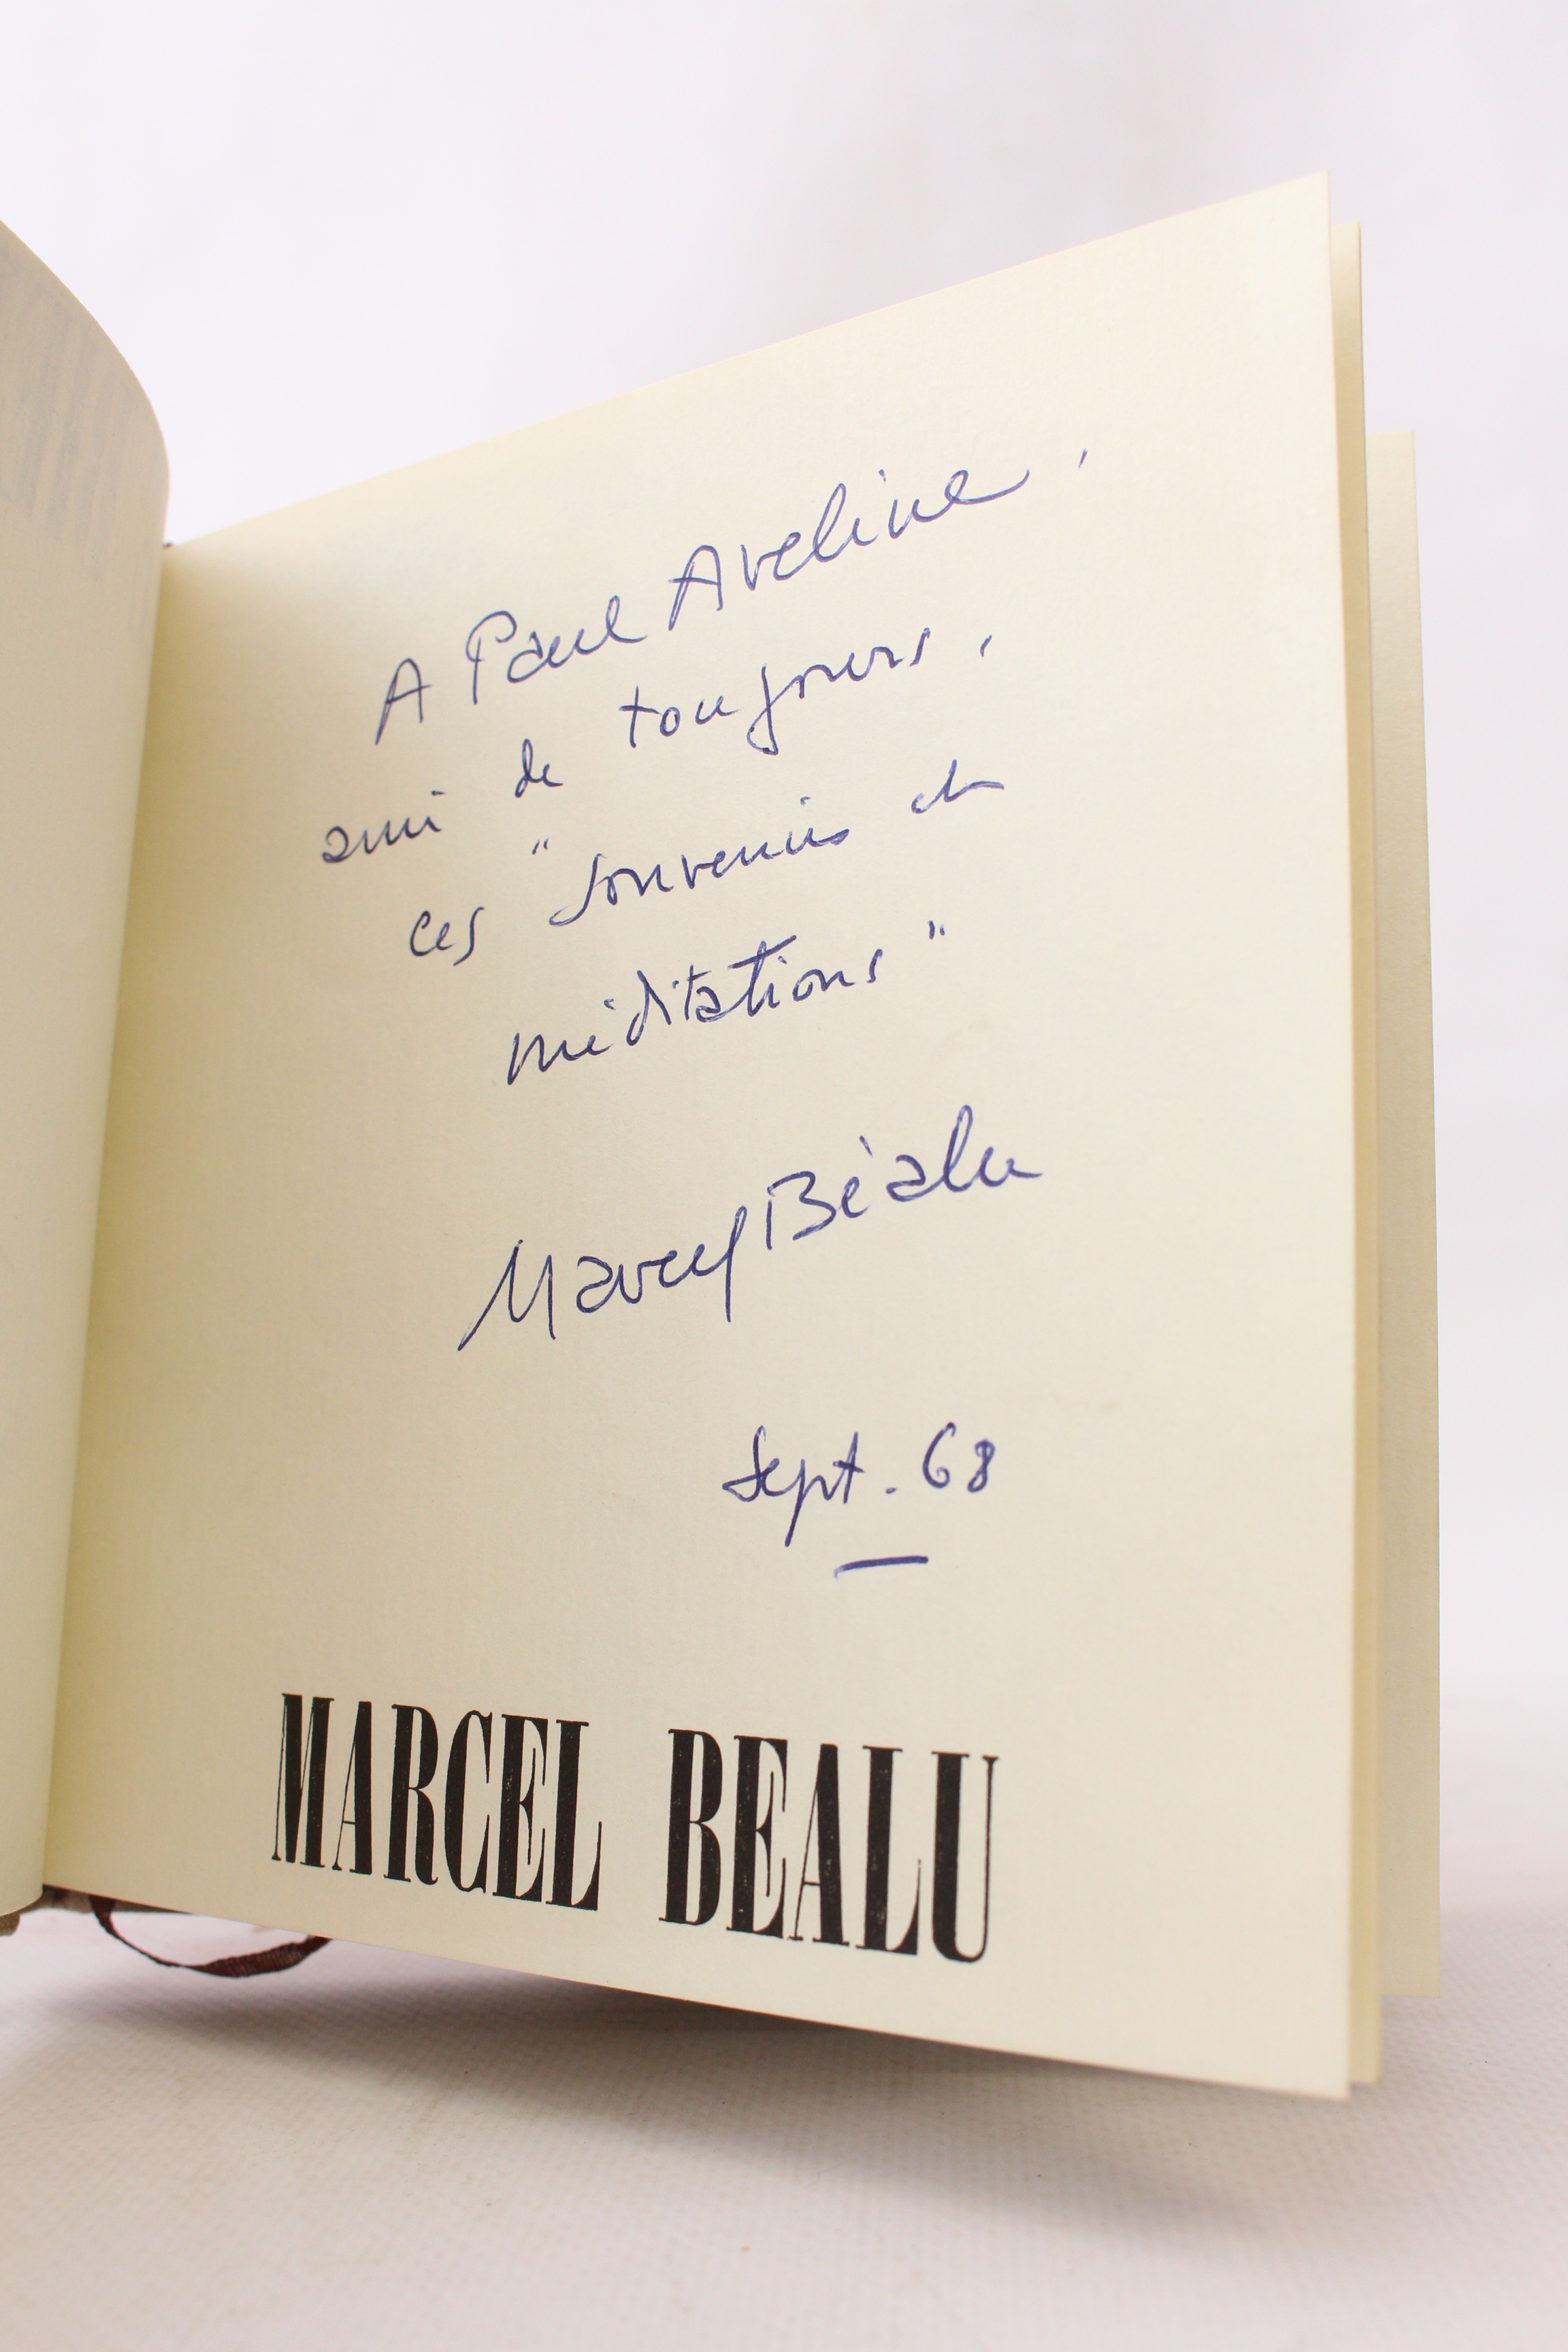 A Paul Aveline,
ami de toujours,
ces "souvenirs et
méditations"
Marcel Béalu
Sept. 68
MARCEL BEALU